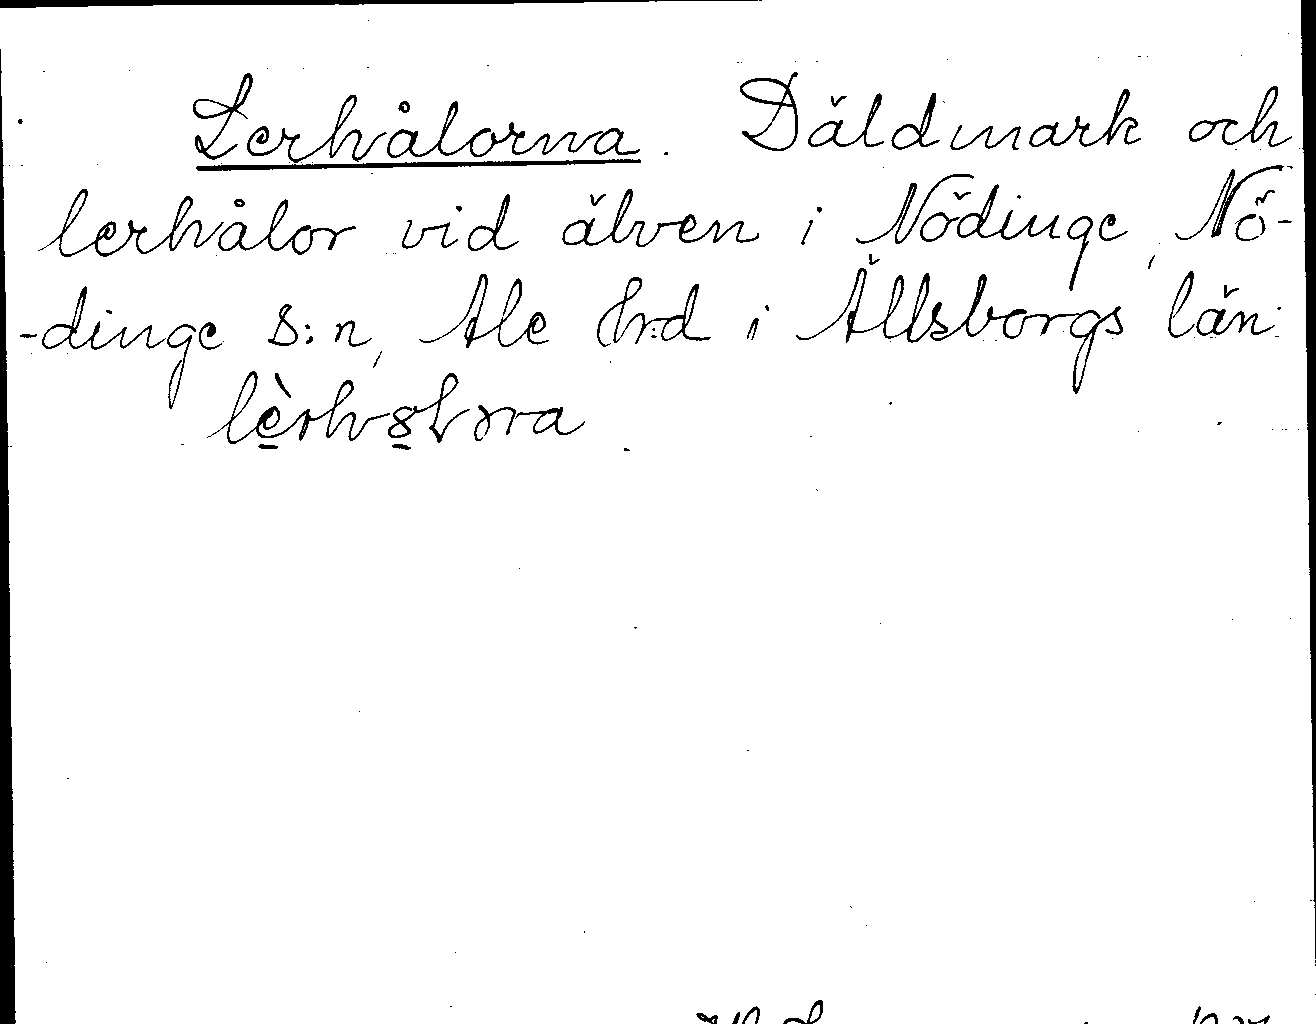 Lerhålorna. Däldmark och
lerhålor vid älven i Nödinge, Nö-
-dinge s:n, Ale hrd i Ällsborgs län.